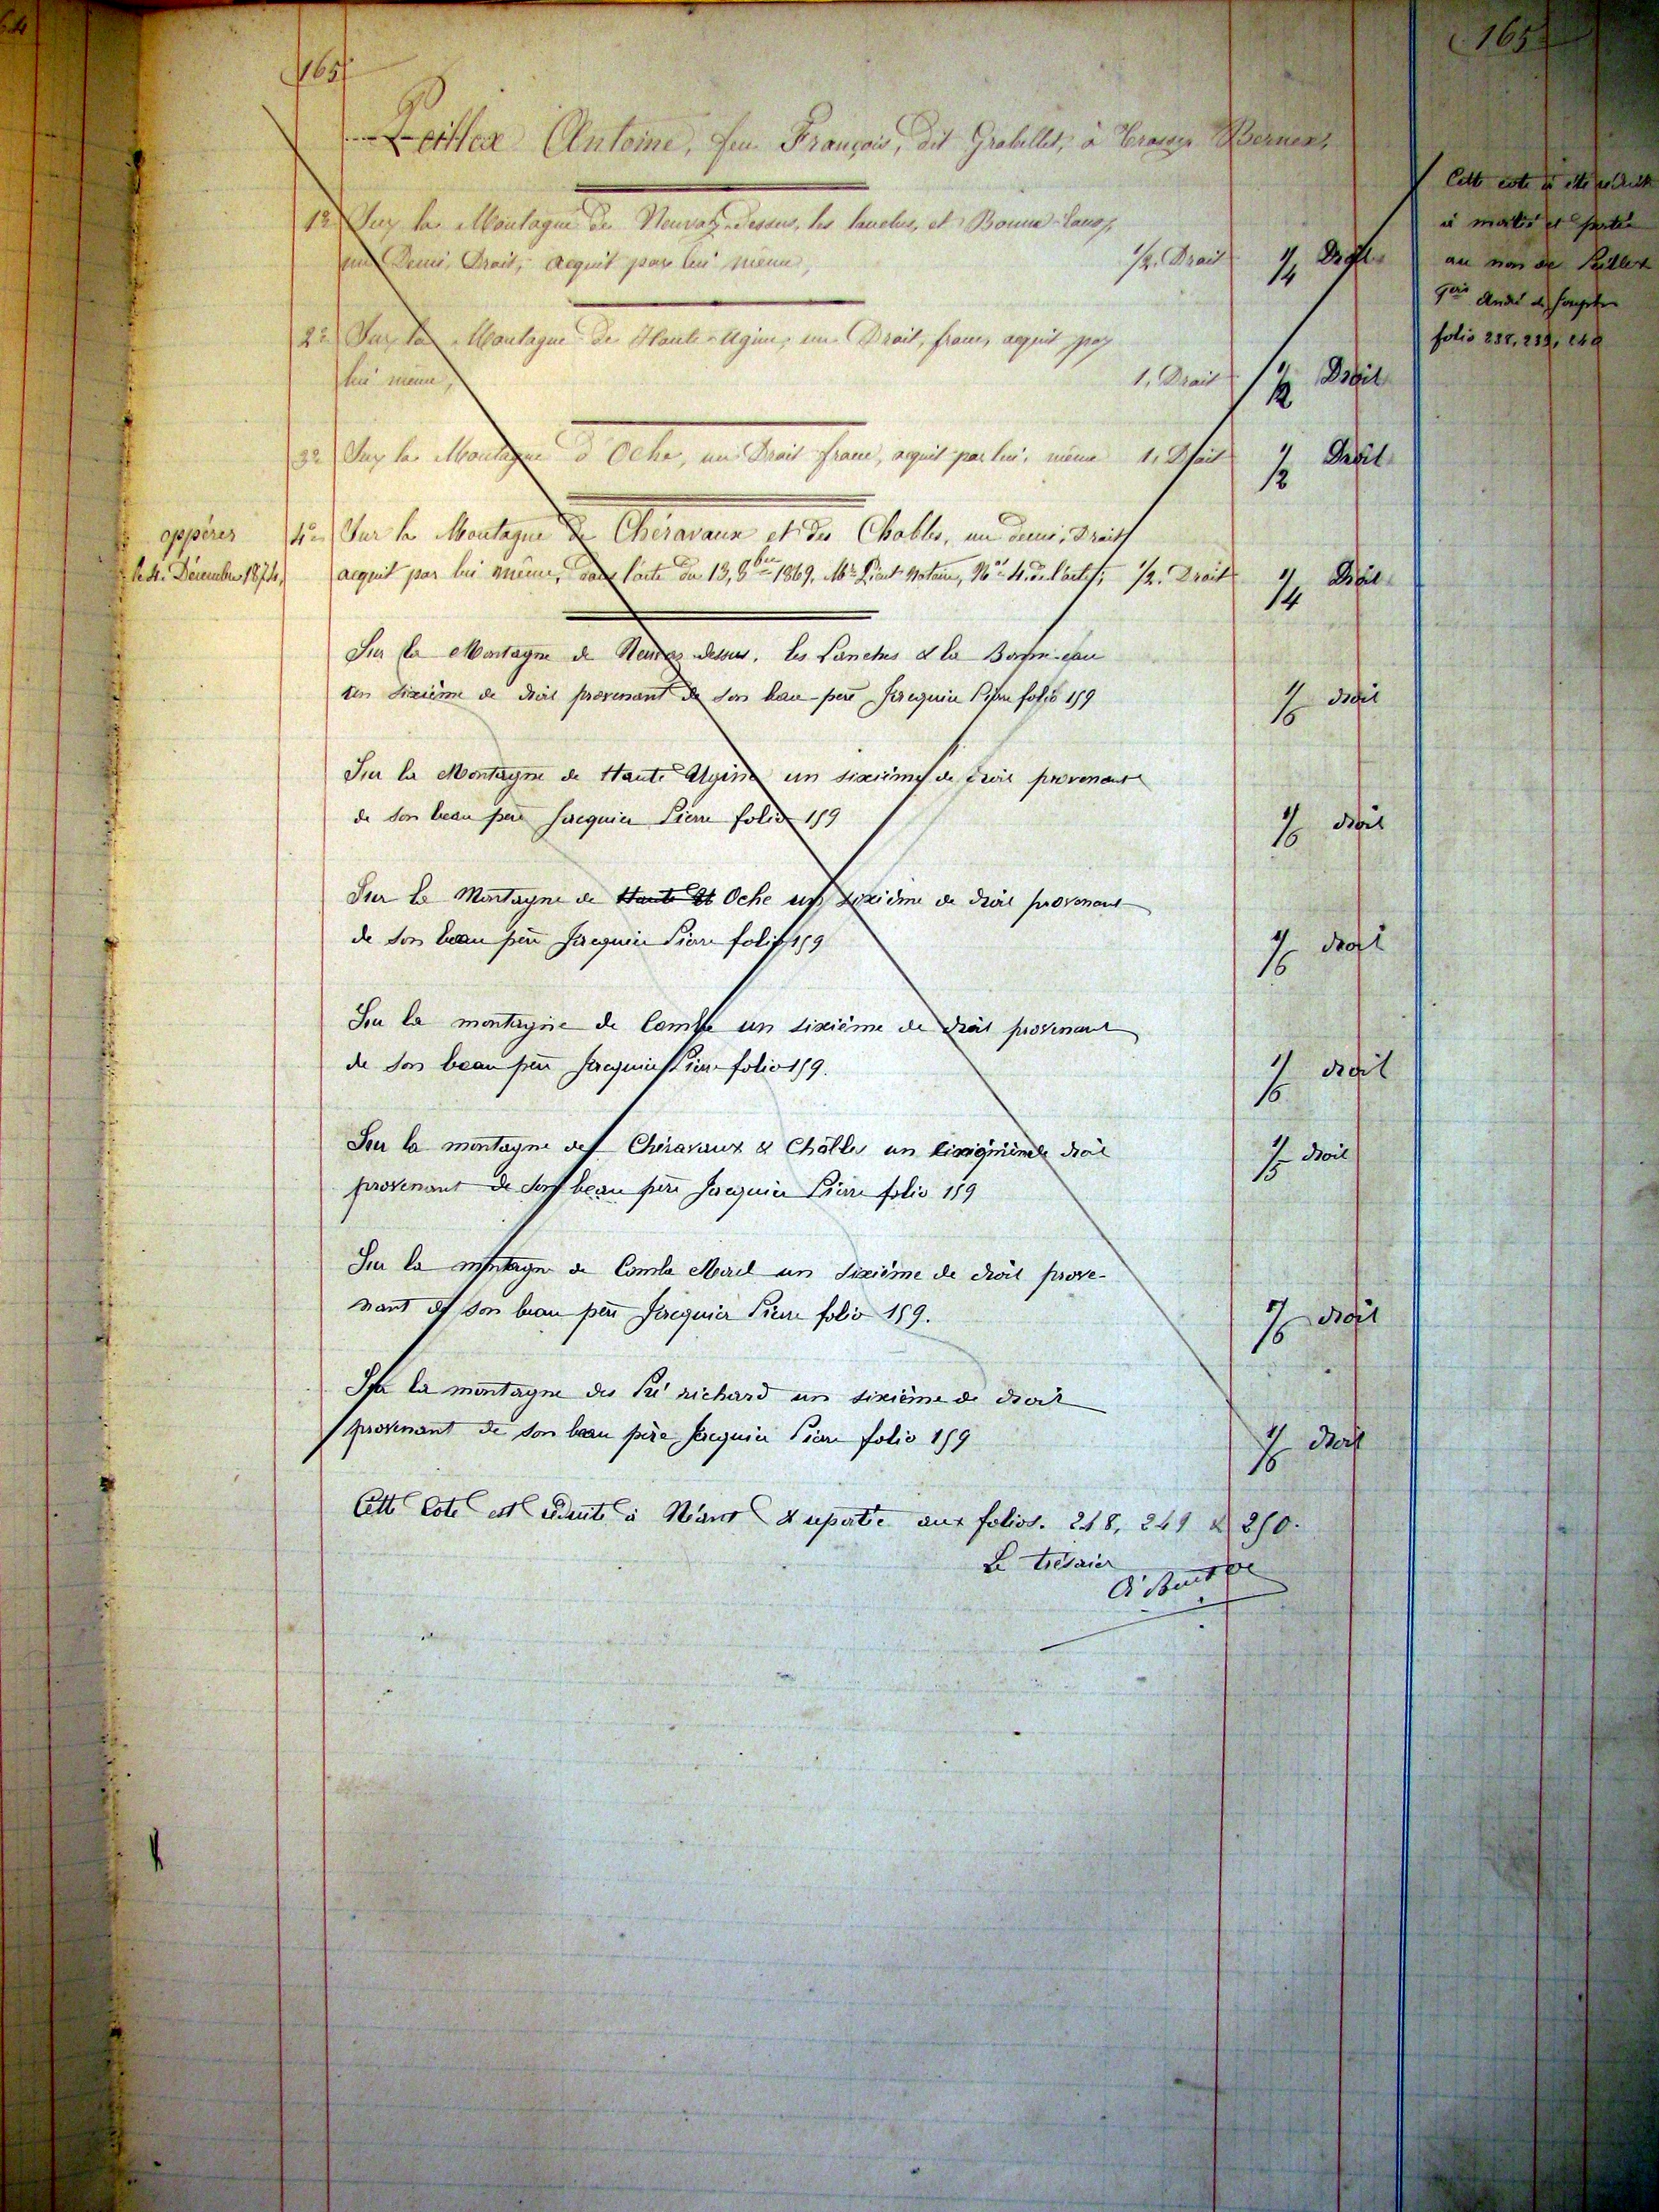 165
165
Peillex Antoine, feu François, dit Grabillet, à Trossy Bernex,
1º Sur la Montagne de Neuvaz-Dessus, les lanches, et Bonne-Eau,
un Demi, Droit, acquit par lui même, 1/2. Droit 1/4 Droit
2º Sur la Montagne de Haute-Ugine, un Droit, franc, acquit par
lui même, 1, Droit 1/2 Droit
3º Sur la Montagne d'Oche, un Droit franc, acquit par lui, même 1, Droit 1/2 Droit
oppérer 4º Sur la Montagne de Chéravaux et des Chables, un demi, Droit
le 4. Décembre 1874, acquit par lui même, dans l'acte du 13, 8bre 1869, Me Notaire, No 4. de l'acte, 1/2. Droit 1/4 Droit
Sur la Montagne de Neuvaz dessus, les Lanches & la Bonne-eau
un sixième de droit provenant de son beau-père Jacquier Pierre folio 159 1/6 droit
Sur la Montagne de Haute Ugine un sixième de droit provenant
de son beau père Jacquier Pierre folio 159 1/6 droit
Sur la Montagne de Haute Oche un sixième de droit provenant
de son beau père Jacquier Pierre folio 159 1/6 droit
Sur la montagne de Combe un sixième de droit provenant
de son beau père Jacquier Pierre folio 159. 1/6 droit
Sur la montagne de Chéravaux & Châbles un droit 1/5 droit
provenant de son beau père Jacquier Pierre folio 159
Sur la montagne de Combe un sixième de droit prove-
nant de son beau père Jacquier Pierre folio 159. 1/6 droit
Sur la montagne des Pré richard un sixième de droit
provenant de son beau père Jacquier Pierre folio 159 1/6 droit
Cette Cote est réduite à Néant & repartie aux folios. 248, 249 & 250.
Le trésorier
Cette cote a été réduite
à moitié et portée
au nom de Peillex
folio 238, 239, 240